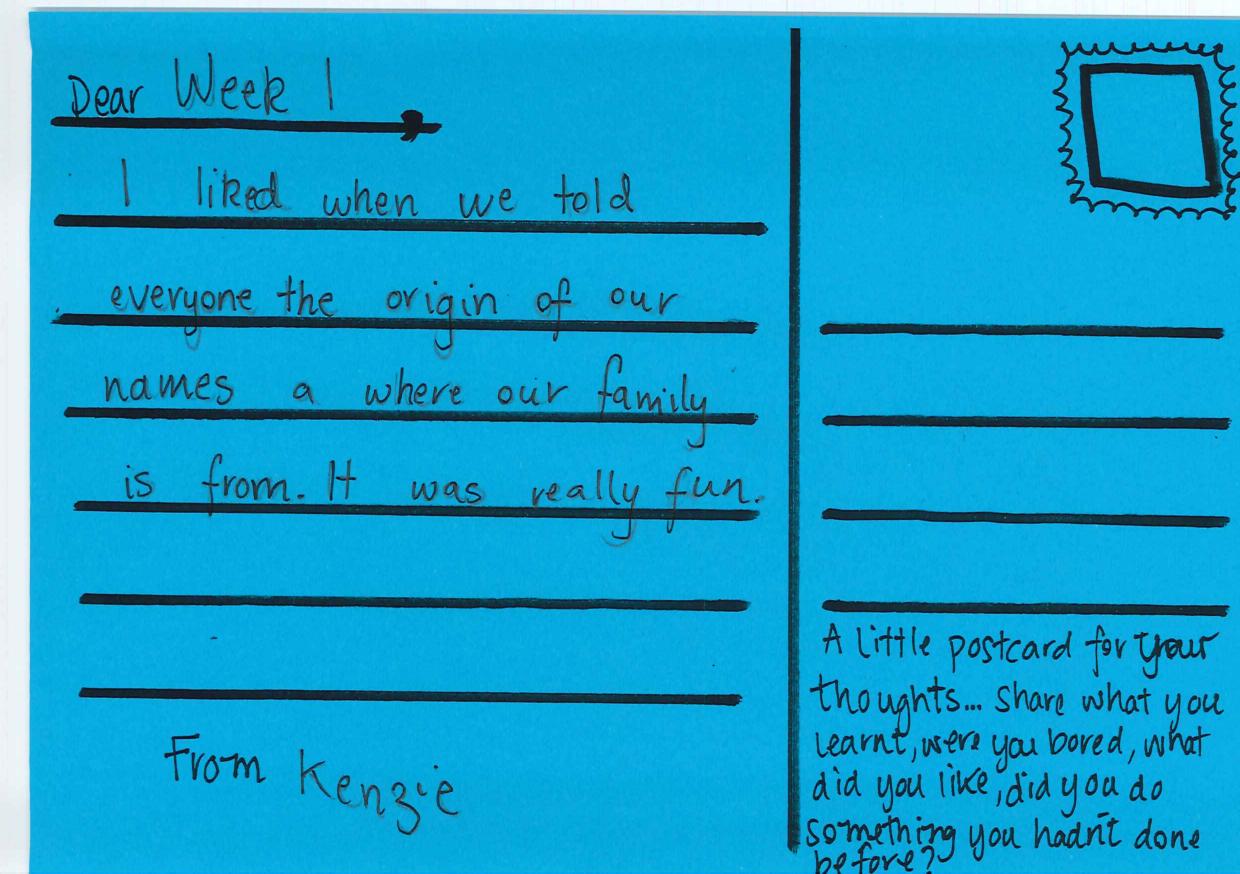 Dear Week 1,
I liked when we told
everyone the origin of our
names a where our family
is from. It was really fun.
From Kenzie
A little postcard for your
thoughts... Share what you
learnt, were you bored, what
did you like, did you do
something you hadn't done
before?